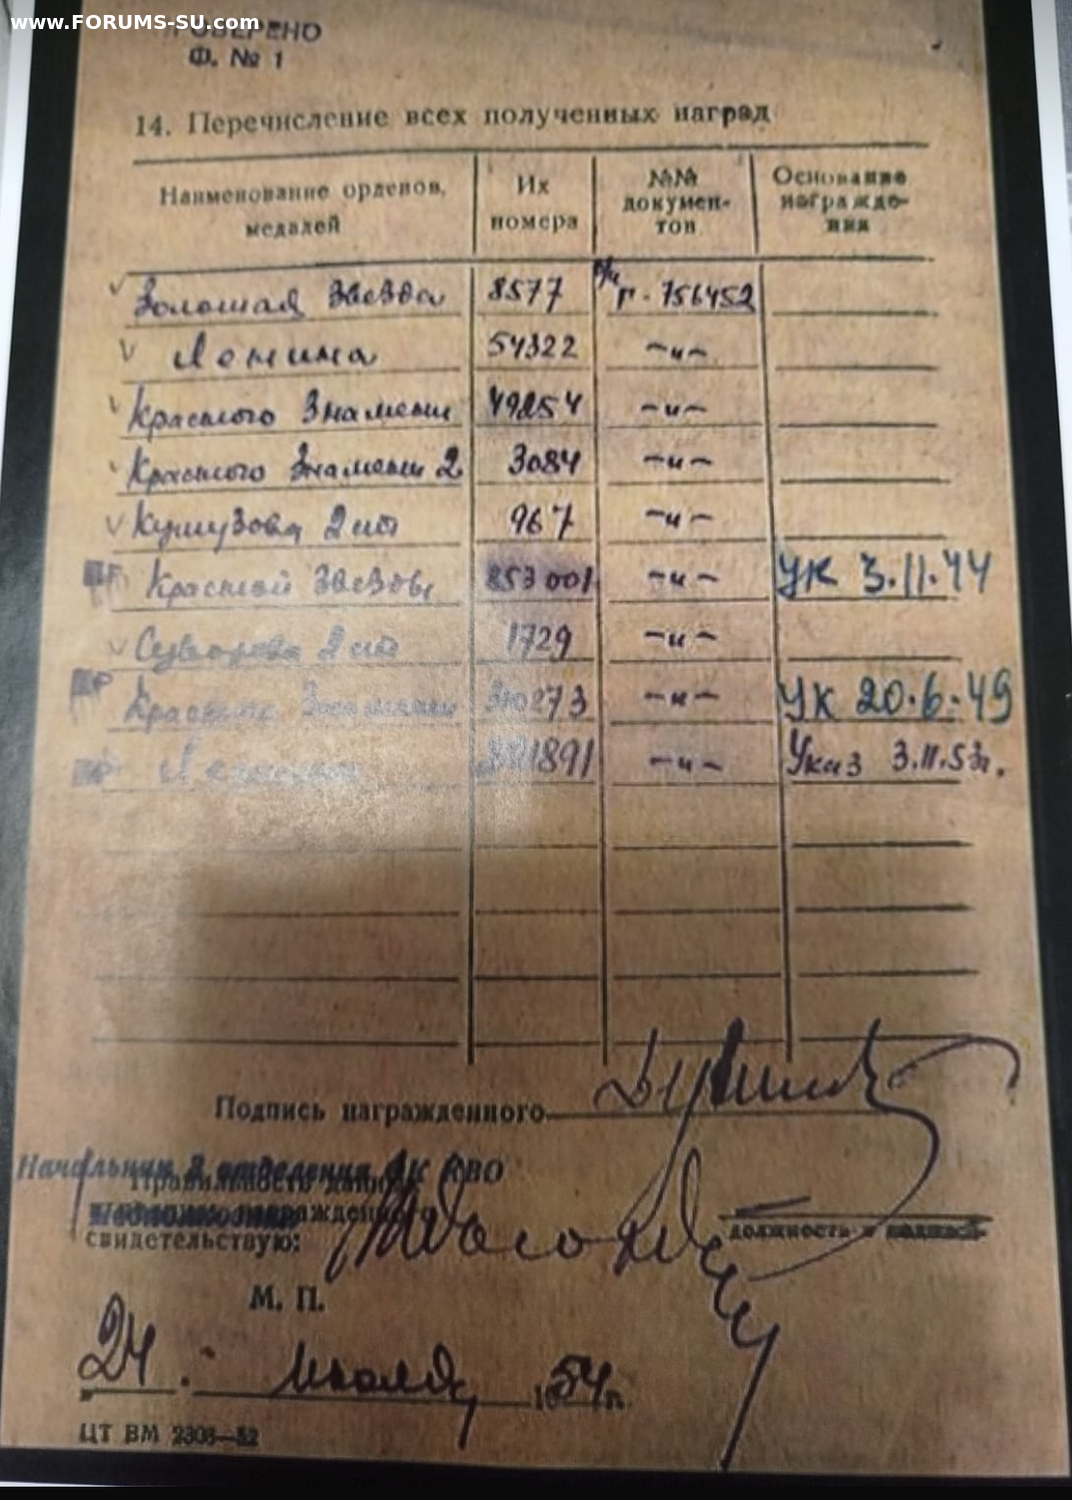 www.FORUMS-SU.com
ПРОВЕРЕНО
Ф. № 1
14. Перечисление всех полученных наград
Наименование орденов, медалей | Их номера | №№ докумен-тов | Основание награжде-ния
Золотая Звезда 8577 г. 756452
Ленина 54322 -"-
Красного Знамени 49254 -"-
Красного Знамени 2 3084 -"-
Кутузова 2 ст 967 -"-
Красной Звезды 853001 -"- УК 3.11.44
Суворова 2 ст 1729 -"-
Красного Знамени 310273 -"- УК 20.6.49
Ленина -"- Указ 3.11.53г.
Подпись награжденного
Начальник 2 отделения ОК КВО
Правильность данных
награжденного
свидетельствую:
должность и подпись
М. П.
"24" июля 1954 г.
ЦТ ВМ 2308—52